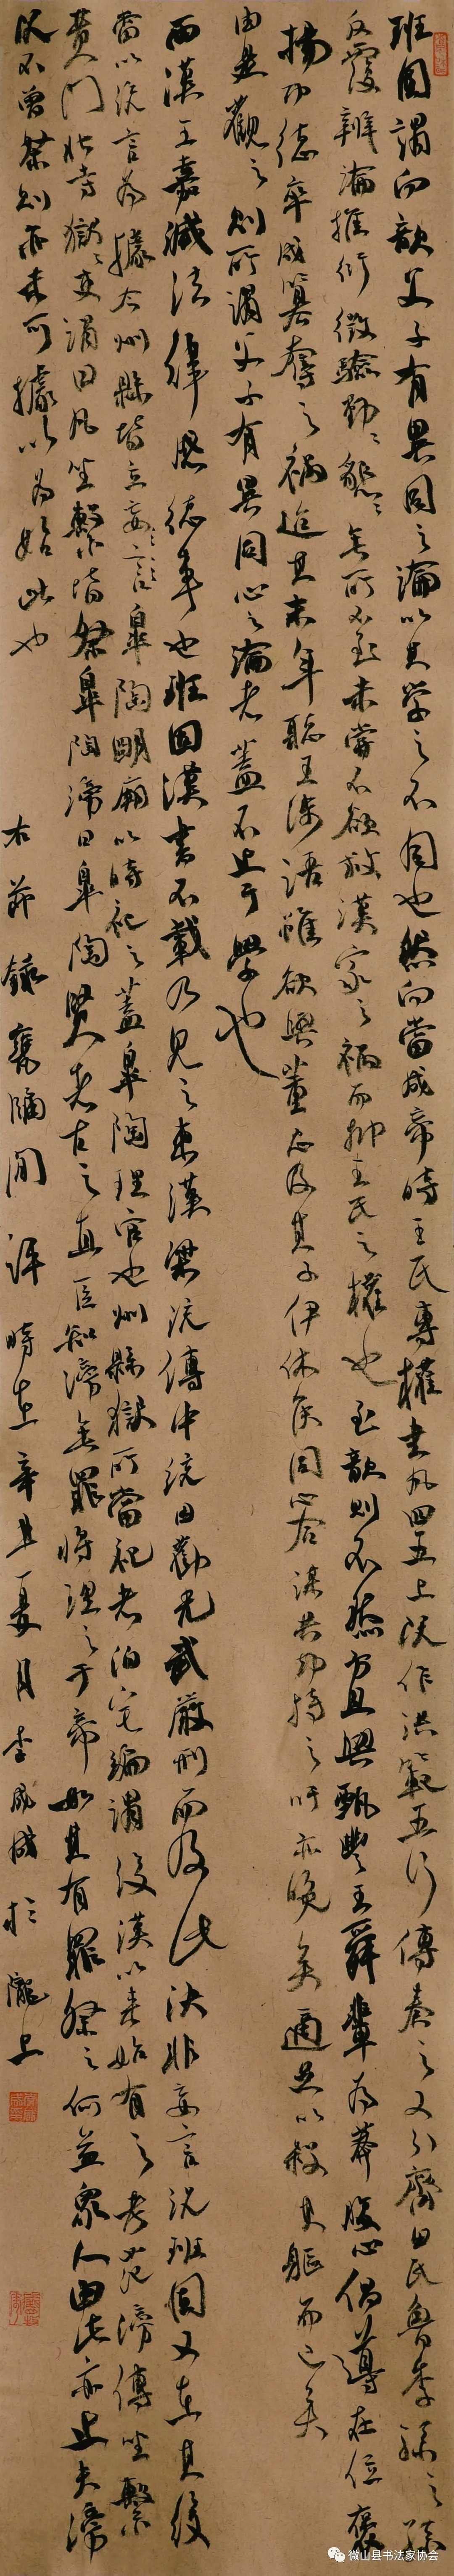 班固謂向歆父子有異同之論以其學之不同也然向當成帝時王氏專權書凡四五上復作洪範五行傳奏之又引齊田氏魯季孫之孫
反覆辨論推衍徵驗勤勤懇懇無所不至未嘗不欲救漢家之禍而抑王氏之權也至歆則不然方且與甄豐王舜輩為莽腹心倡導在位褒
揚功德卒成篡奪之禍迨其末年聽王涉語雖欲興董忠及其子伊休侯同心合謀共劫持之吁亦晚矣適足以殺其軀而已矣
由是觀之則所謂父子有異同心之論者蓋不止于學也
西漢王嘉減法律盛德事也班固漢書不載乃見之東漢梁統傳中統因勸光武嚴刑而及此決非妄言況班固又在其後
當以統言為據今州縣皆立妄言皋陶明廟以時祀之蓋皋陶理官也州縣獄所當祀者泊宅編謂後漢以來始有之考范滂傳坐繫
黃門北寺獄獄吏謂曰凡坐繫皆祭皋陶滂曰皋陶賢者古之直臣知滂無罪將理之于帝如其有罪祭之何益眾人由此亦止夫滂
既不曾祭則亦未可據以為始此也
右節錄甕牖閒評時在辛丑夏月李成於隴上
微山县书法家协会